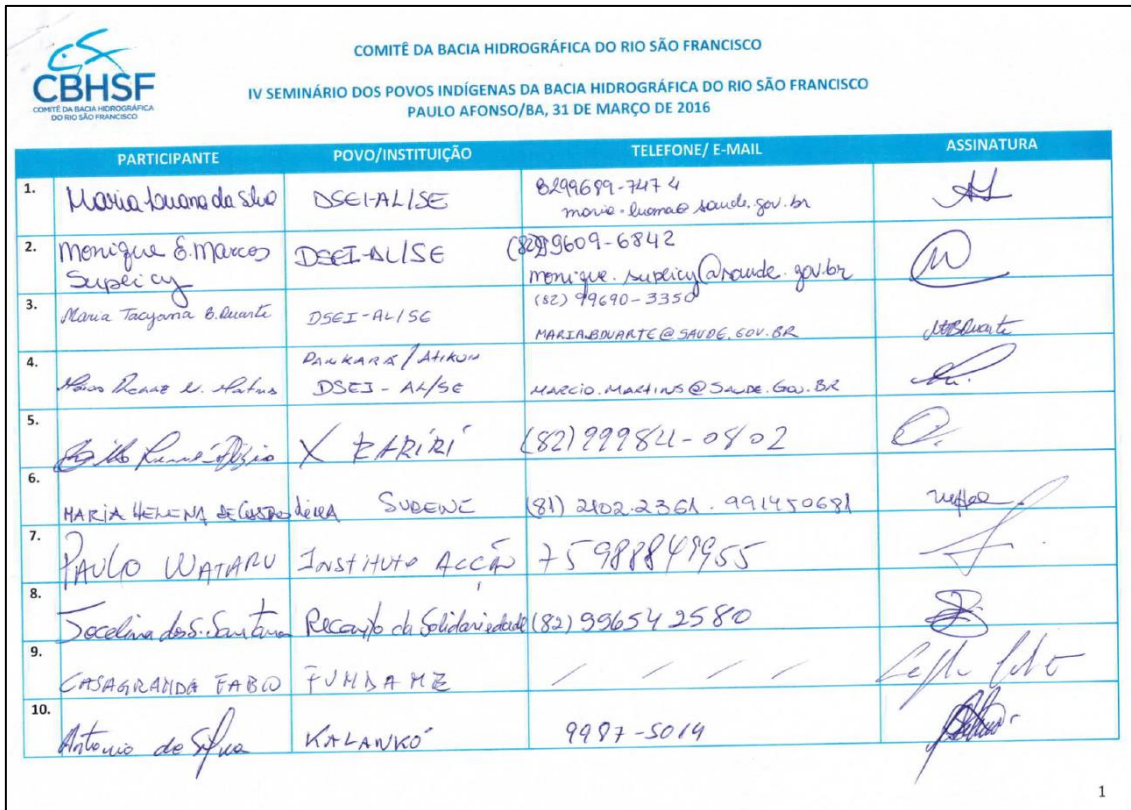 CBHSF
COMITÊ DA BACIA HIDROGRÁFICA
DO RIO SÃO FRANCISCO
COMITÊ DA BACIA HIDROGRÁFICA DO RIO SÃO FRANCISCO
IV SEMINÁRIO DOS POVOS INDÍGENAS DA BACIA HIDROGRÁFICA DO RIO SÃO FRANCISCO
PAULO AFONSO/BA, 31 DE MARÇO DE 2016
PARTICIPANTE POVO/INSTITUIÇÃO TELEFONE/ E-MAIL ASSINATURA
1. Maria Luana da Silva DSEI-AL/SE 8299689-7474
maria.luana@saude.gov.br
2. Monique E. Marcos DSEI-AL/SE 9609-6842
Supeicy monique.supeicy@saude.gov.br
3. Maria Tacyana B. Duarte DSEI-AL/SE (82) 99690-3350
MARIA.BDUARTE@SAUDE.GOV.BR
4. PANKARÁ/ATIKUM
DSEI-AL/SE MARCIO.MARTINS@SAUDE.GOV.BR
5. X KARIRÍ (82)99984-0802
6. MARIA HELENA DE CASTRO SUDENE (81) 2102.2361. 991450681
7. PAULO WATARU INSTITUTO ACÇÃO 75 988849955
8. Jocelina dos S. Santana Recanto da Solidariedade (82) 996542580
9. CASAGRANDE FABIO FUNDAME / / / /
10. Antonio da Silva KALANKÓ 9987-5014
1